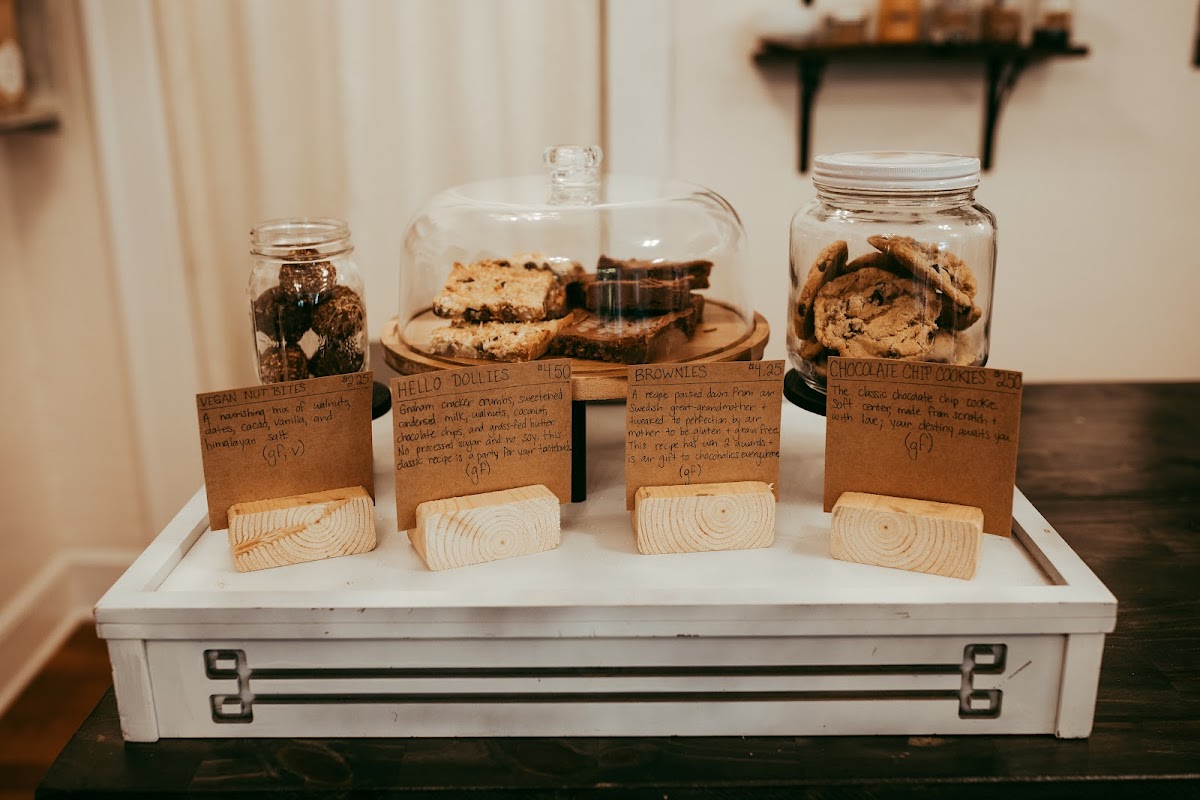 VEGAN NUT BITES $2.25
A nourishing mix of walnuts,
dates, cacao, vanilla, and
himalayan salt.
(gf, v)
HELLO DOLLIES $4.50
Graham cracker crumbs, sweetened
condensed milk, walnuts, coconut,
chocolate chips, and grass-fed butter.
No processed sugar and no soy. This
classic recipe is a party for your tastebuds
(gf)
BROWNIES $4.25
A recipe passed down from our
Swedish great-grandmother +
tweaked to perfection by our
mother to be gluten + grain free.
This recipe has won 2 awards +
is our gift to chocoholics everywhere
(gf)
CHOCOLATE CHIP COOKIES $2.50
The classic chocolate chip cookie.
Soft center, made from scratch +
with love; your destiny awaits you
(gf)